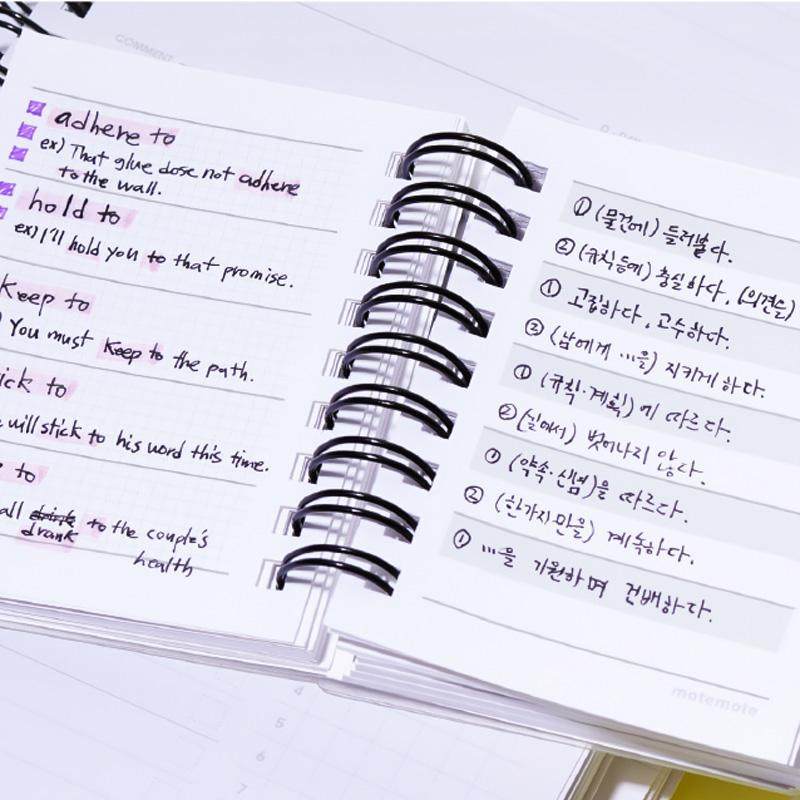 COMMENT
adhere to
ex) That glue dose not adhere
to the wall.
hold to
ex) I'll hold you to that promise.
Keep to
You must Keep to the path.
ick to
will stick to his word this time.
to
all drink to the couple's
drank
health
① (물건에) 들러붙다.
② (규칙등에) 충실하다, (의견을)
① 고집하다, 고수하다.
② (남에게 …을) 지키게 하다.
① (규칙·계획)에 따르다.
② (길에서) 벗어나지 않다.
① (약속·신념)을 따르다.
② (한가지만을) 계속하다.
① …을 기원하며 건배하다.
motemote
4
5
6
7